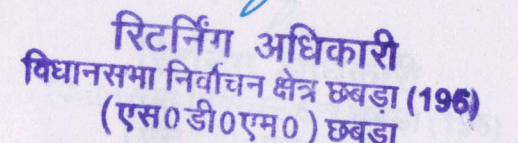 रिटर्निंग अधिकारी
विधानसभा निर्वाचन क्षेत्र छबड़ा (196)
(एस0 डी0 एम0) छबड़ा